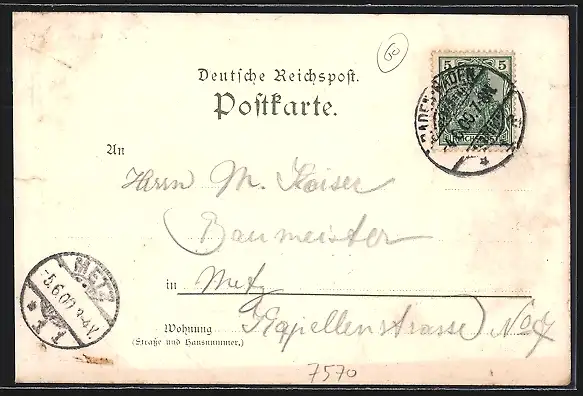 60
Deutsche Reichspost.
Postkarte.
5 5
BADEN-BADEN
REICHSPOST
An
Herrn M. Kaiser
Baumeister
in Metz
Wohnung Kapellenstrasse No 7
(Straße und Hausnummer.)
METZ
-5.6.00.3-4V.
7570